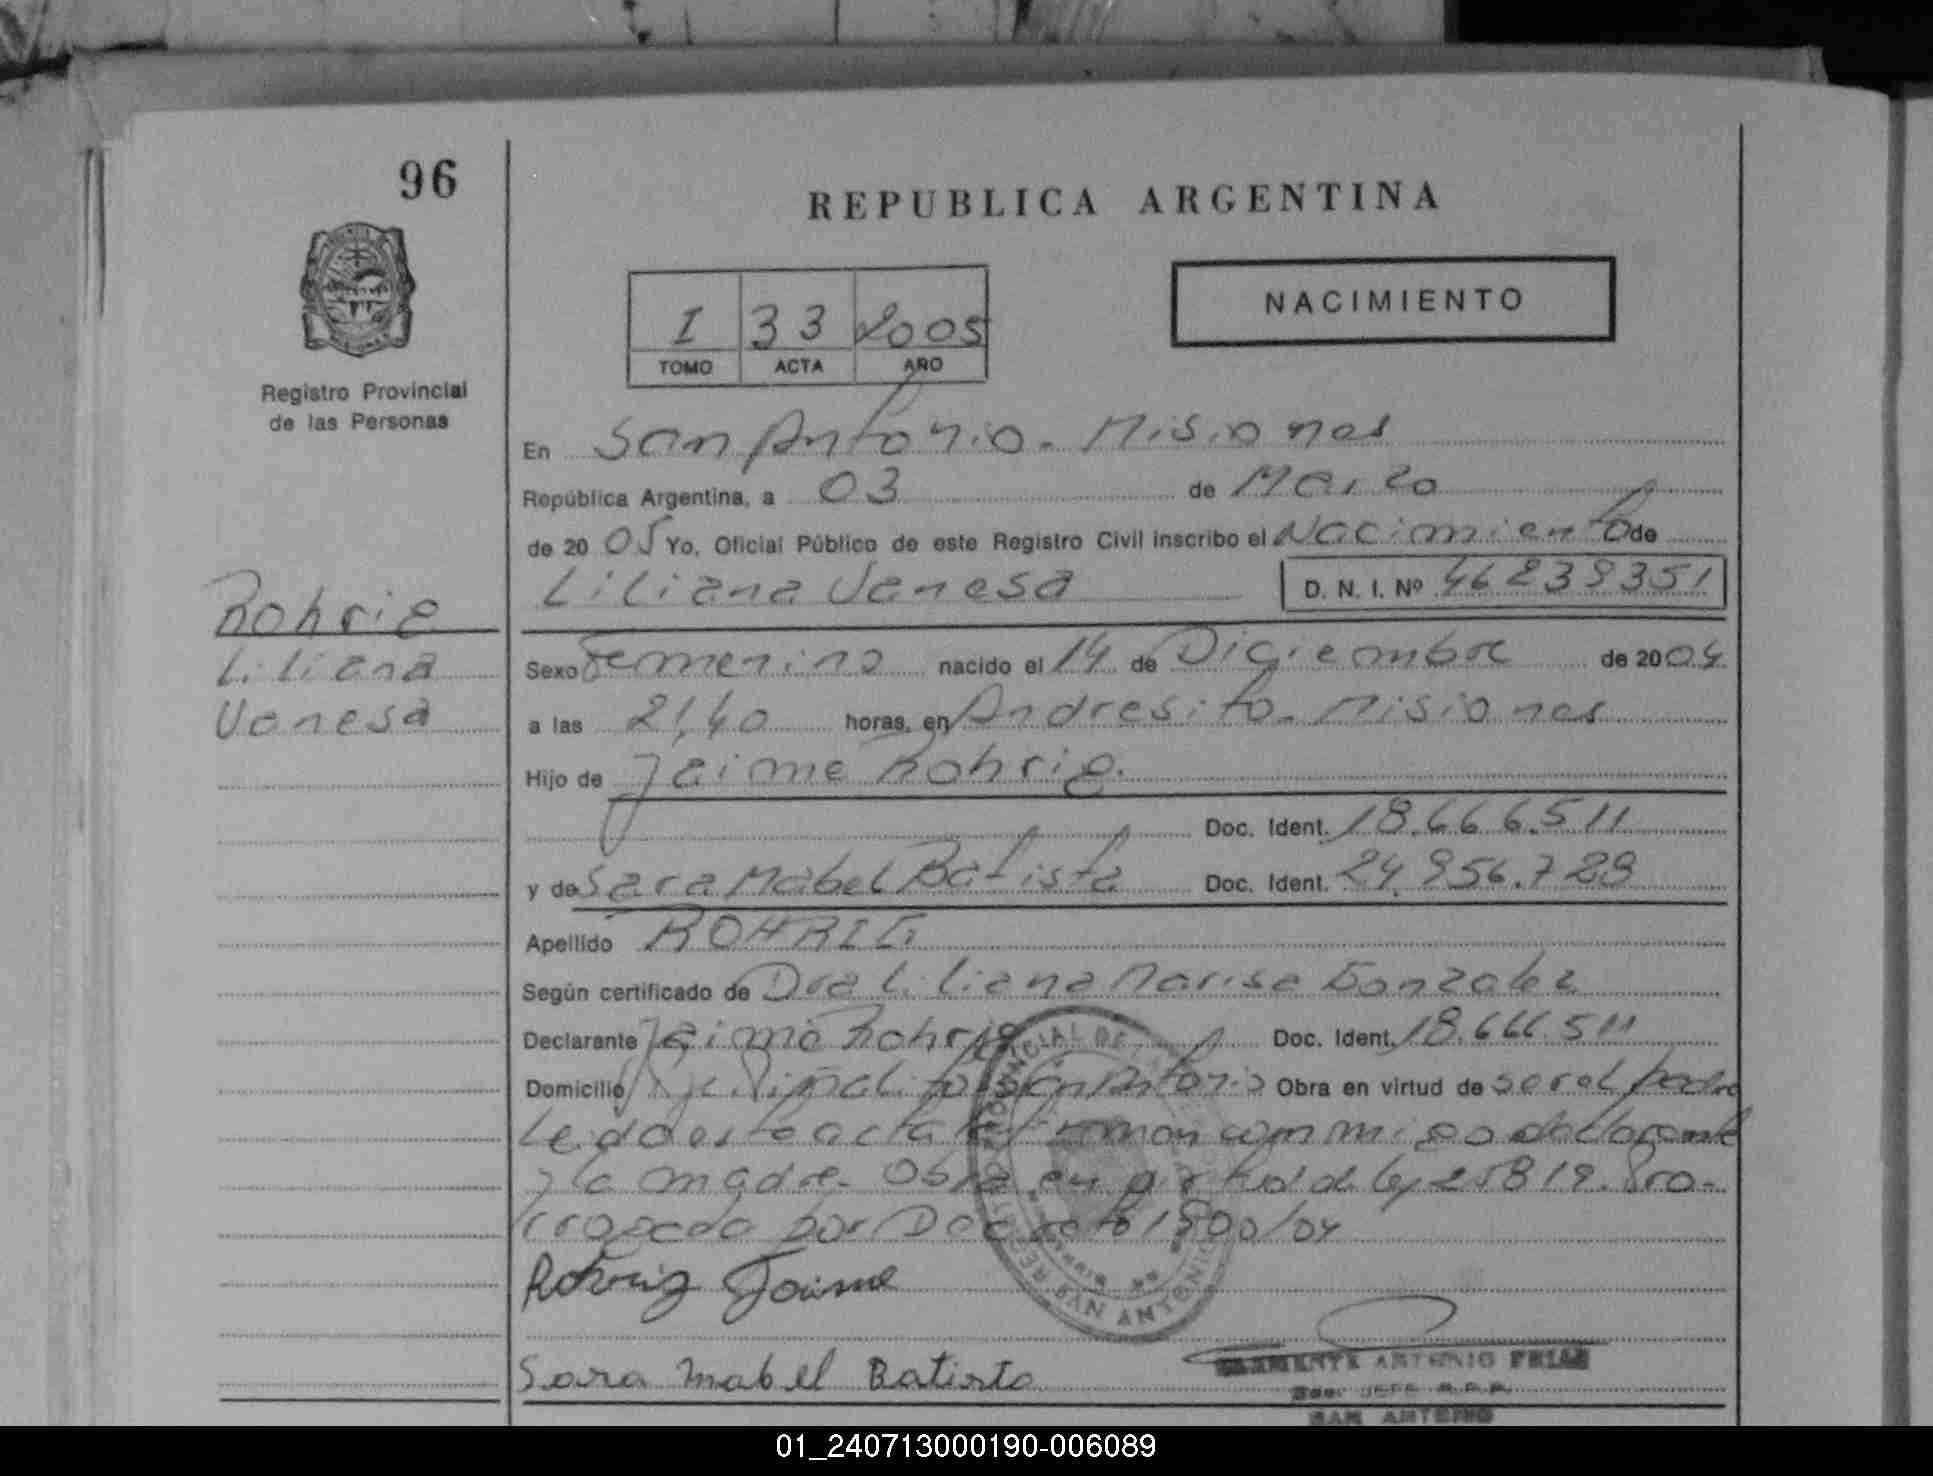 96
REPUBLICA ARGENTINA
NACIMIENTO
I 33 2005
TOMO ACTA AÑO
Registro Provincial
de las Personas
En San Antonio - Misiones
República Argentina, a 03 de Marzo
de 2005 Yo, Oficial Público de este Registro Civil inscribo el Nacimiento de
Liliana Vanesa D. N. I. Nº 46239351
Rohrig
Liliana
Vanesa
Sexo Femenino nacido el 14 de Diciembre de 2004
a las 21,40 horas, en Andresito - Misiones
Hijo de Jaime Rohrig.
Doc. Ident. 18.666.511
y de Sara Mabel Batista Doc. Ident. 24.956.729
Apellido ROHRIG
Según certificado de Dra Liliana Marisa Gonzalez
Declarante Jaime Rohrig Doc. Ident. 18.666.511
Domicilio Piñalito San Antonio Obra en virtud de ser el padre
Leida este acta firman conmigo declarante
y la madre. Obra en virtud de ley 25819. Pro-
rrogada por Decreto 1800/04
Rohrig Jaime
Sara Mabel Batista
ANTONIO FRIAS
JEFE R.P.P.
SAN ANTONIO
REGISTRO PROVINCIAL DE LA
SAN ANTONIO
01_240713000190-006089